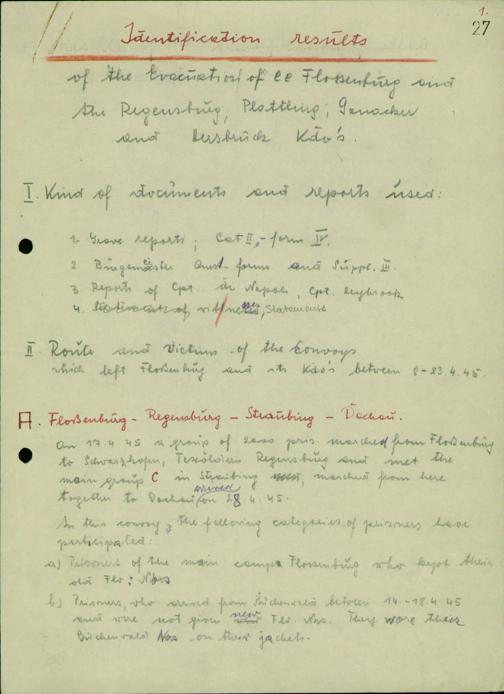 1.
27
Identification results
of the Evacuation of CC Floßenbürg and
the Regensburg, Plattling, Ganacker
and Hersbruck Kdo's.
I. Kind of documents and reports used:
1. Grave reports; Cat II,-form IV.
2. Bürgermeister Quest-forms and Suppl. III.
3 Reports of Cpt. di Napoli, Cpt.
4. of witnesses, Statements
II Route and Victims of the Convoys
which left Floßenbürg and its Kdo's between 8-23.4.45.
A. Floßenbürg - Regensburg - Straubing - Dachau.
On 17.4 45 a group of 2000 pris. marched from Floßenbürg
to Schwarzhofen, Regensburg and met the
main group C in Straubing, marched from here
together to Dachau on 28 4.45.
In this convoy, the following categories of prisoners have
participated:
a) Prisoners of the main camp Flossenbürg who kept their
old Flo: Nos
b) Prisoners, who arrived from Buchenwald between 14.-18.4 45
and were not given new Flo. Nos. They wore their
Buchenwald Nos on their jackets.